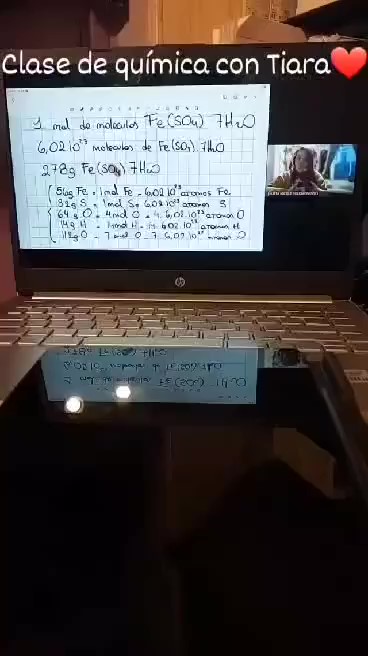 Clase de química con Tiara❤️
1 mol de moleculas Fe(SO4) 7H2O
6,02 10²³ moleculas de Fe(SO4) 7H2O
278g Fe(SO4) 7H2O
56g Fe = 1mol Fe = 6,02 10²³ atomos Fe
32g S = 1mol S = 6,02 10²³ atomos S
64g O = 4mol O = 4. 6,02 10²³ atomos O
14g H = mol H = 14 6,02 10²³ atomos H
112g O = 7 mol O = 7. 6,02 10²³ atomos O
hp